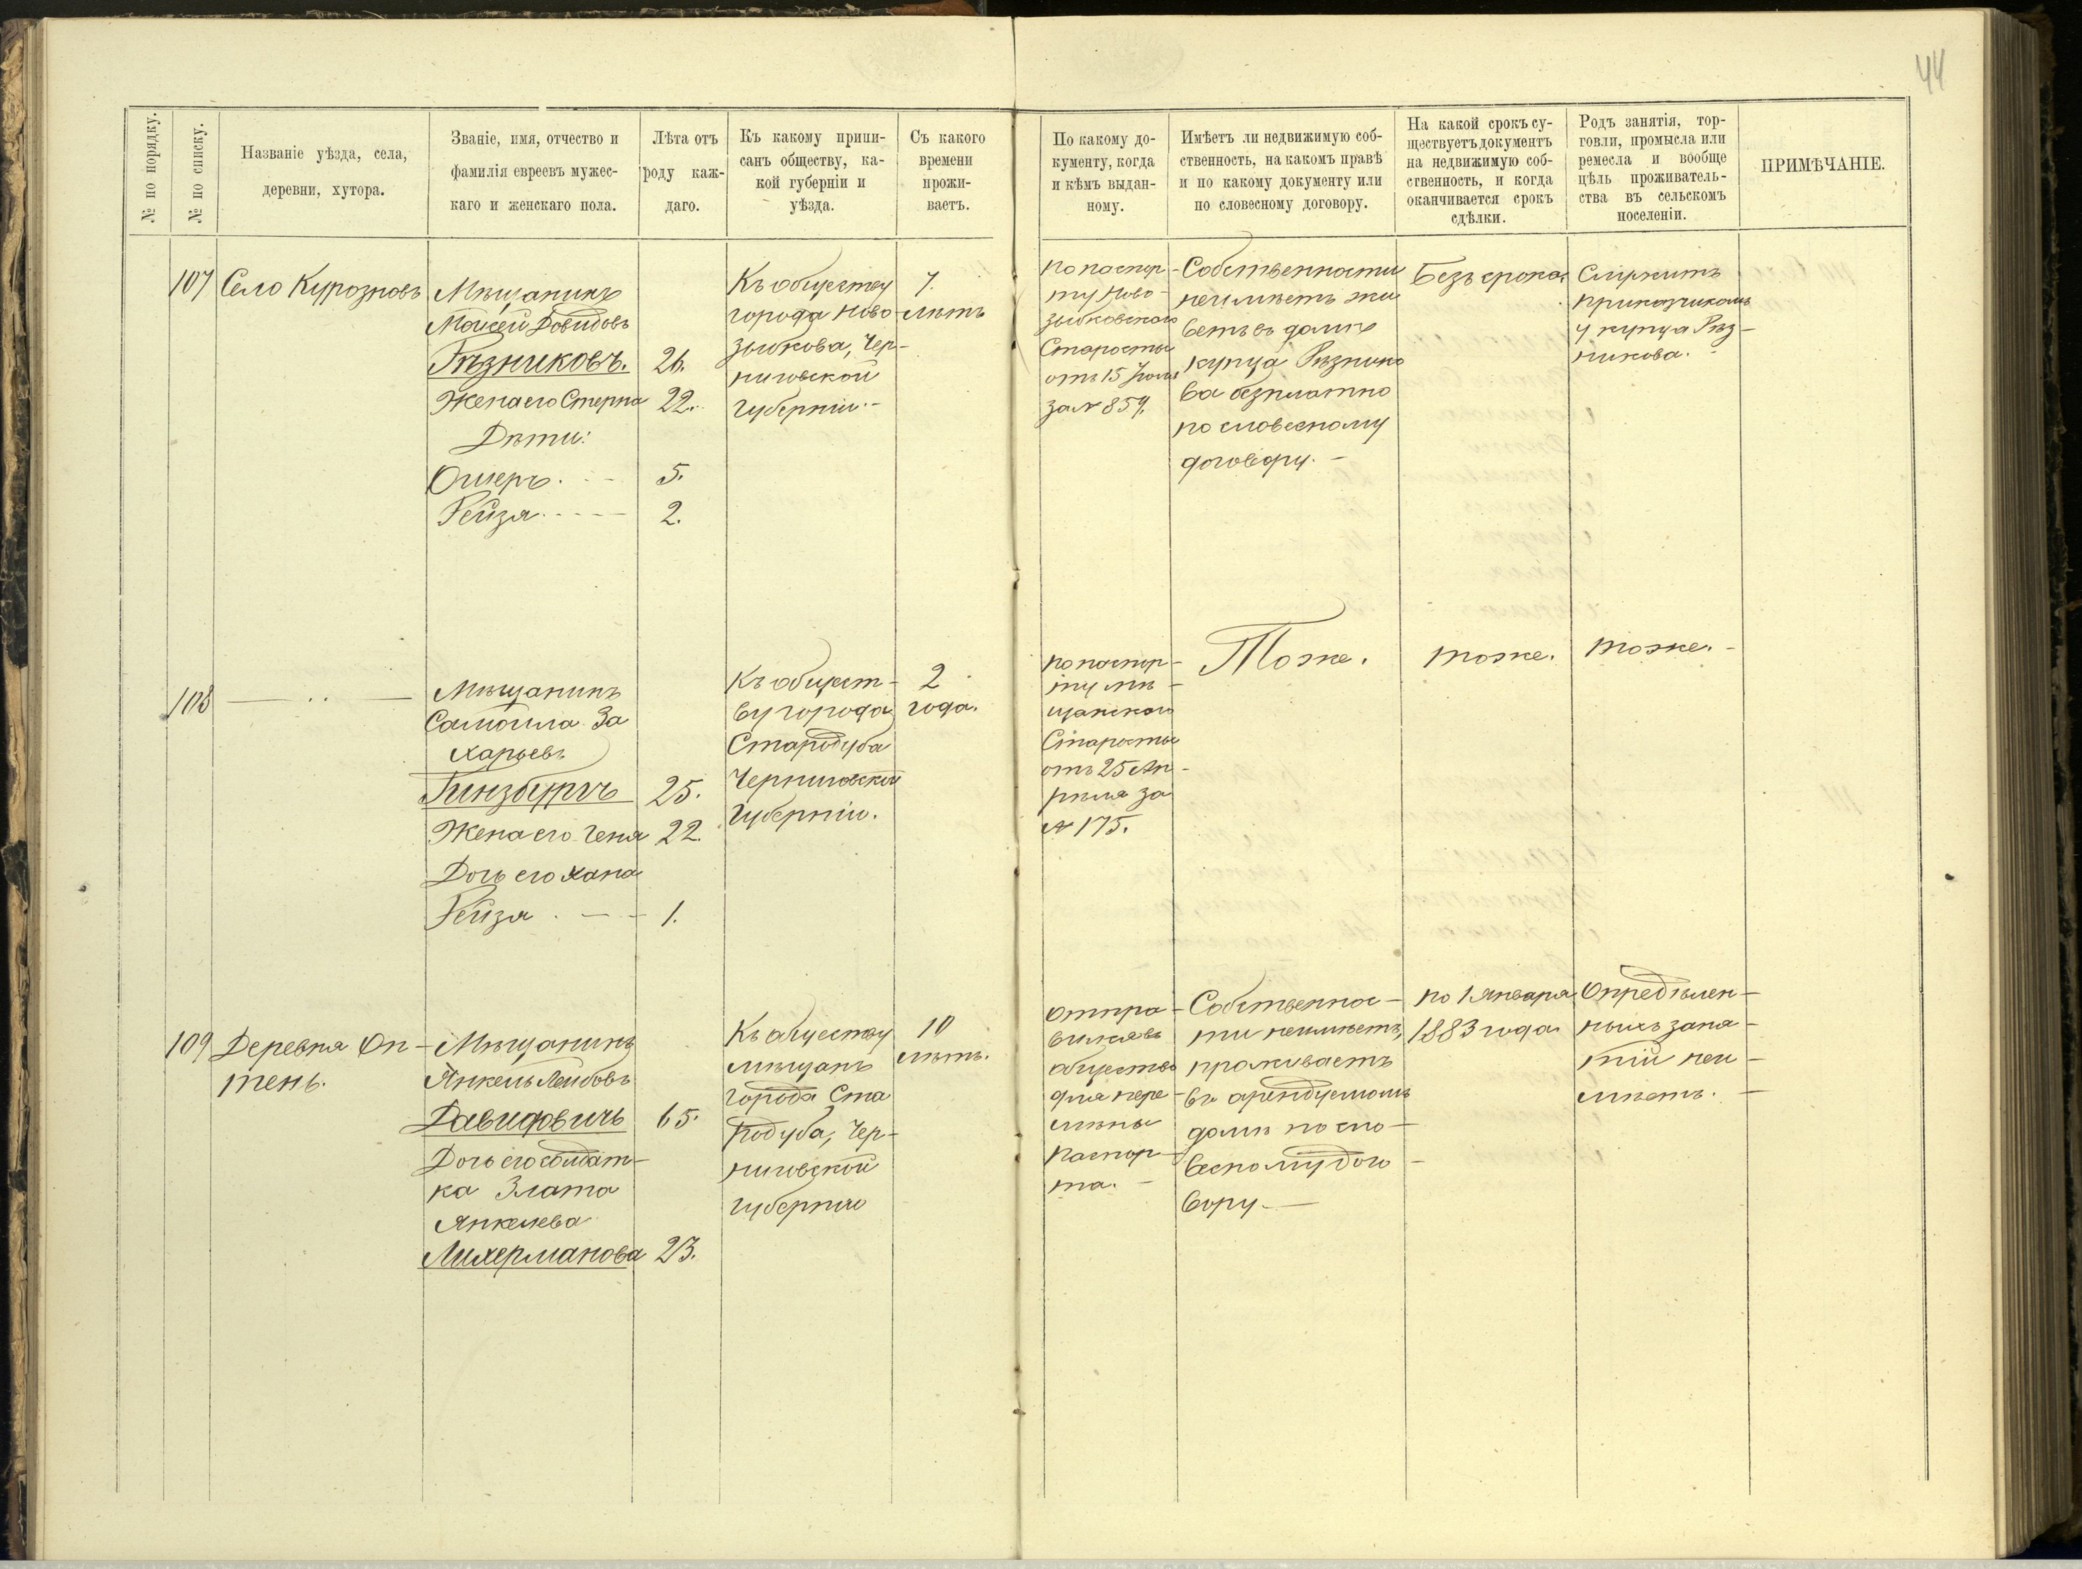 44
№ по порядку.
№ по списку.
Названіе уѣзда, села,
деревни, хутора.
Званіе, имя, отчество и
фамилія евреевъ мужес-
каго и женскаго пола.
Лѣта отъ
роду каж-
даго.
Къ какому припи-
санъ обществу, ка-
кой губерніи и
уѣзда.
Съ какого
времени
прожи-
ваетъ.
По какому до-
кументу, когда
и кѣмъ выдан-
ному.
Имѣетъ ли недвижимую соб-
ственность, на какомъ правѣ
и по какому документу или
по словесному договору.
На какой срокъ су-
ществуетъ документъ
на недвижимую соб-
ственность, и когда
оканчивается срокъ
сдѣлки.
Родъ занятія, тор-
говли, промысла или
ремесла и вообще
цѣль проживатель-
ства въ сельскомъ
поселеніи.
ПРИМѢЧАНІЕ.
107
Село Курозновъ
Мѣщанинъ
Мовшей Довидовъ
Рѣзниковъ.
Жена его Стерна
Дѣти:
Ошеръ. - -
Рейзя - - - -
26.
22.
5.
2.
Къ обществу
города Ново-
зыбкова, Чер-
ниговской
губерніи. -
7.
лѣтъ
по паспор-
ту Ново-
зыбковскаго
Старосты
отъ 15 Іюля
за № 859.
Собственности
неимѣетъ жи
ветъ въ домѣ
купца Рѣзнико
ва безплатно
по словесному
договору. -
Безъ срока.
Служитъ
прикащикомъ
у купца Рѣз-
никова. -
108
Мѣщанинъ
Самоила За
харьевъ
Гинзбургъ
Жена его Геня
Дочь его Хана
Рейзя . - -
25.
22.
1.
Къ общест-
ву города
Стародуба
Черниговской
губерніи.
2
года.
по паспор-
ту мѣ-
щанскаго
Старосты
отъ 25 Ап-
рѣля за
№ 175.
Тоже.
тоже.
тоже. -
109
Деревня Оп-
тень.
Мѣщанинъ
Янкель Лейбовъ
Давидовичъ
Дочь его солдат-
ка Злата
Янкелева
Лихерманова
65.
23.
Къ обществу
мѣщанъ
города Ста
родуба, Чер-
ниговской
губерніи
10
лѣтъ.
отпра-
вился въ
общество
для пере-
мѣны
паспор-
та. -
Собственнос-
ти неимѣетъ,
проживаетъ
въ арендуемомъ
домѣ по сло-
весному дого-
вору. -
по 1 Января
1883 года
Опредѣлен-
ныхъ заня-
тій неи-
мѣетъ. -